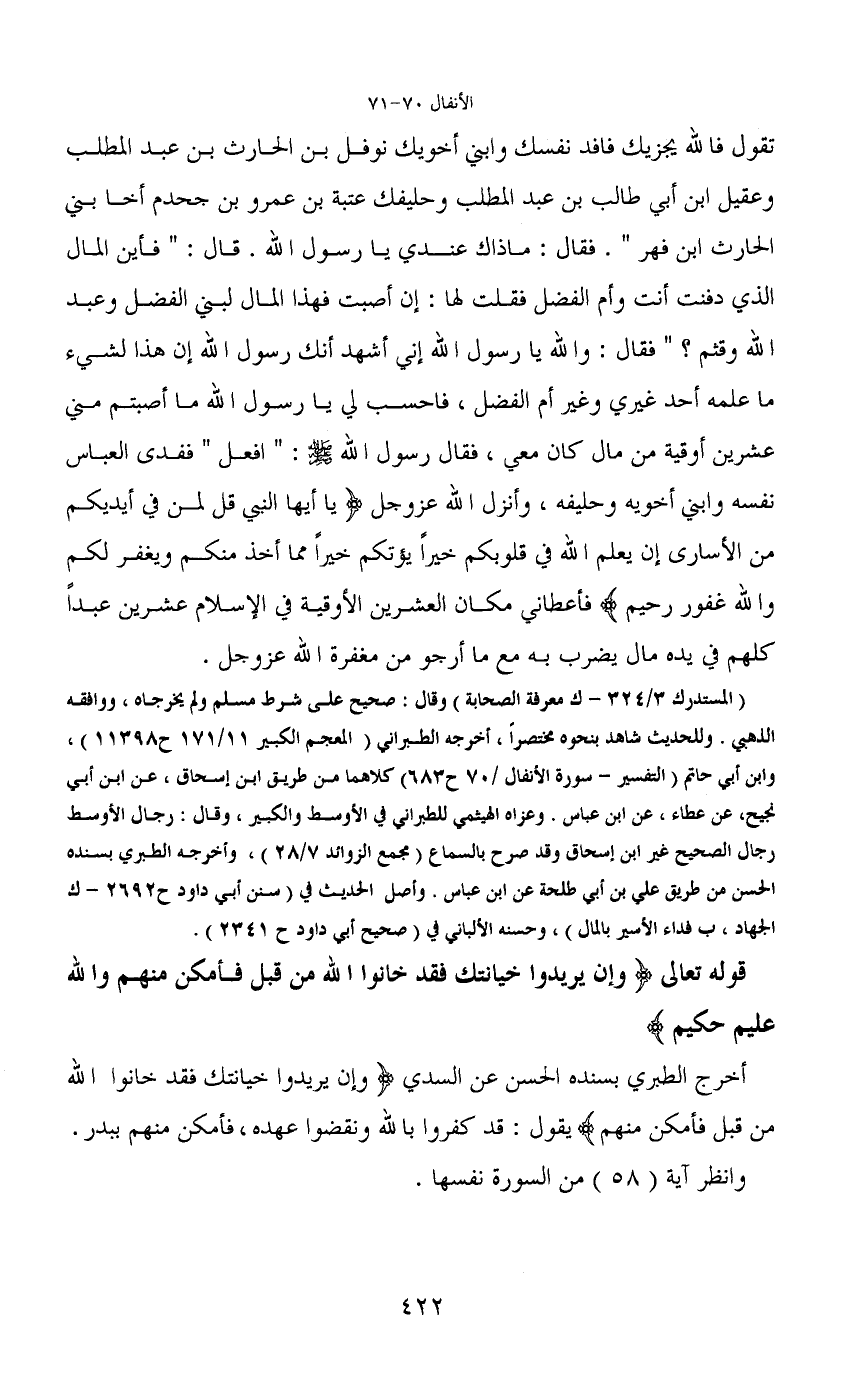 الأنفال ٧٠-٧١
تقول فالله يجزيك فافد نفسك وابني أخويك نوفل بن الحارث بن عبد المطلب
وعقيل ابن أبي طالب بن عبد المطلب وحليفك عتبة بن عمرو بن جحدم أخا بني
الحارث ابن فهر " . فقال : ماذاك عندي يا رسول الله . قال : " فأين المال
الذي دفنت أنت وأم الفضل فقلت لها : إن أصبت فهذا المال لبني الفضل وعبد
الله وقثم ؟ " فقال : والله يا رسول الله إني أشهد أنك رسول الله إن هذا لشيء
ما علمه أحد غيري وغير أم الفضل ، فاحسب لي يا رسول الله ما أصبتم مني
عشرين أوقية من مال كان معي ، فقال رسول الله ﷺ : " افعل " ففدى العباس
نفسه وابني أخويه وحليفه ، وأنزل الله عزوجل ﴿ يا أيها النبي قل لمن في أيديكم
من الأسارى إن يعلم الله في قلوبكم خيراً يؤتكم خيراً مما أخذ منكم ويغفر لكم
والله غفور رحيم ﴾ فأعطاني مكان العشرين الأوقية في الإسلام عشرين عبداً
كلهم في يده مال يضرب به مع ما أرجو من مغفرة الله عزوجل .
( المستدرك ٣٢٤/٣ - ك معرفة الصحابة ) وقال : صحيح على شرط مسلم ولم يخرجاه ، ووافقه
الذهبي . وللحديث شاهد بنحوه مختصراً ، أخرجه الطبراني ( المعجم الكبير ١٧١/١١ ح١١٣٩٨ ) ،
وابن أبي حاتم ( التفسير - سورة الأنفال /٧٠ ح٦٨٣) كلاهما من طريق ابن إسحاق ، عن ابن أبي
نجيح، عن عطاء ، عن ابن عباس . وعزاه الهيثمي للطبراني في الأوسط والكبير ، وقال : رجال الأوسط
رجال الصحيح غير ابن إسحاق وقد صرح بالسماع ( مجمع الزوائد ٢٨/٧ ) ، وأخرجه الطبري بسنده
الحسن من طريق علي بن أبي طلحة عن ابن عباس . وأصل الحديث في ( سنن أبي داود ح٢٦٩٢ - ك
الجهاد ، ب فداء الأسير بالمال ) ، وحسنه الألباني في ( صحيح أبي داود ح ٢٣٤١ ) .
قوله تعالى ﴿ وإن يريدوا خيانتك فقد خانوا الله من قبل فأمكن منهم والله
عليم حكيم ﴾
أخرج الطبري بسنده الحسن عن السدي ﴿ وإن يريدوا خيانتك فقد خانوا الله
من قبل فأمكن منهم ﴾ يقول : قد كفروا بالله ونقضوا عهده، فأمكن منهم ببدر .
وانظر آية ( ٥٨ ) من السورة نفسها .
٤٢٢